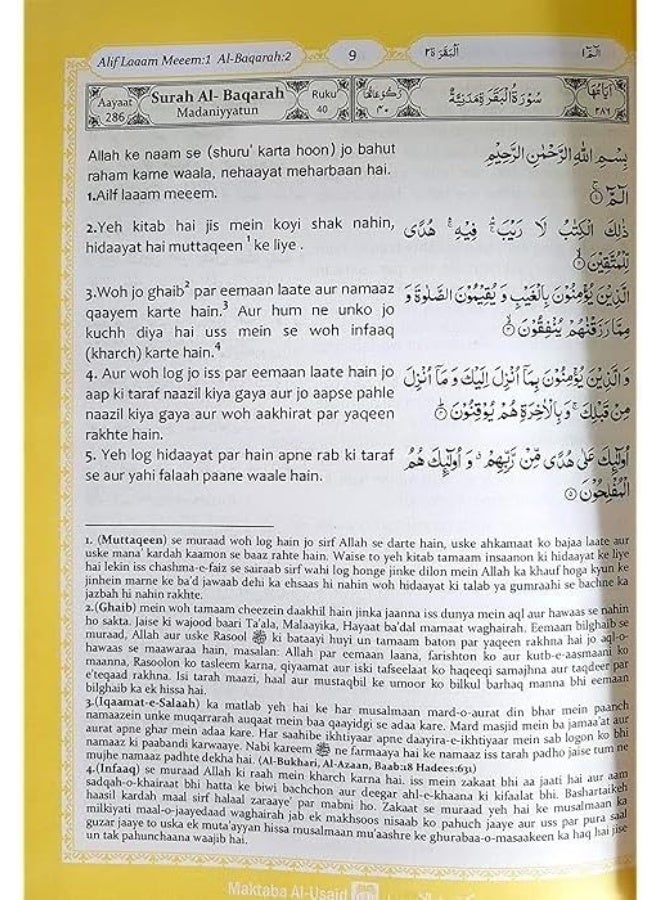 Alif Laaam Meeem:1 Al-Baqarah:2
9
اَلْبَقَرَة ٢
الٓمّٓ ١
Aayaat 286
Surah Al- Baqarah
Madaniyyatun
Ruku 40
رُكُوْعَاتُهَا ٤٠
سُوْرَةُ الْبَقَرَةِ مَدَنِيَّةٌ
اٰيَاتُهَا ٢٨٦
Allah ke naam se (shuru' karta hoon) jo bahut
raham karne waala, nehaayat meharbaan hai.
بِسْمِ اللّٰهِ الرَّحْمٰنِ الرَّحِيْمِ
1.Ailf laaam meeem.
الٓمّٓ ۝١
2.Yeh kitab hai jis mein koyi shak nahin,
hidaayat hai muttaqeen ¹ ke liye .
ذٰلِكَ الْكِتٰبُ لَا رَيْبَ ۛ فِيْهِ ۛ هُدًى
لِّلْمُتَّقِيْنَ ۝٢
3.Woh jo ghaib² par eemaan laate aur namaaz
qaayem karte hain.³ Aur hum ne unko jo
kuchh diya hai uss mein se woh infaaq
(kharch) karte hain.⁴
الَّذِيْنَ يُؤْمِنُوْنَ بِالْغَيْبِ وَ يُقِيْمُوْنَ الصَّلٰوةَ وَ
مِمَّا رَزَقْنٰهُمْ يُنْفِقُوْنَ ۝٣
4. Aur woh log jo iss par eemaan laate hain jo
aap ki taraf naazil kiya gaya aur jo aapse pahle
naazil kiya gaya aur woh aakhirat par yaqeen
rakhte hain.
وَ الَّذِيْنَ يُؤْمِنُوْنَ بِمَاۤ اُنْزِلَ اِلَيْكَ وَ مَاۤ اُنْزِلَ
مِنْ قَبْلِكَ ۚ وَ بِالْاٰخِرَةِ هُمْ يُوْقِنُوْنَ ۝٤
5. Yeh log hidaayat par hain apne rab ki taraf
se aur yahi falaah paane waale hain.
اُولٰٓئِكَ عَلٰى هُدًى مِّنْ رَّبِّهِمْ ۙ وَ اُولٰٓئِكَ هُمُ
الْمُفْلِحُوْنَ ۝٥
1. (Muttaqeen) se muraad woh log hain jo sirf Allah se darte hain, uske ahkamaat ko bajaa laate aur
uske mana' kardah kaamon se baaz rahte hain. Waise to yeh kitab tamaam insaanon ki hidaayat ke liye
hai lekin iss chashma-e-faiz se sairaab sirf wahi log honge jinke dilon mein Allah ka khauf hoga kyun ke
jinhein marne ke ba'd jawaab dehi ka ehsaas hi nahin woh hidaayat ki talab ya gumraahi se bachne ka
jazbah hi nahin rakhte.
2.(Ghaib) mein woh tamaam cheezein daakhil hain jinka jaanna iss dunya mein aql aur hawaas se nahin
ho sakta. Jaise ki wajood baari Ta'ala, Malaayika, Hayaat ba'dal mamaat waghairah. Eemaan bilghaib se
muraad, Allah aur uske Rasool ﷺ ki bataayi huyi un tamaam baton par yaqeen rakhna hai jo aql-o-
hawaas se maawaraa hain, masalan: Allah par eemaan laana, farishton ko aur kutb-e-aasmaani ko
maanna, Rasoolon ko tasleem karna, qiyaamat aur iski tafseelaat ko haqeeqi samajhna aur taqdeer par
e'teqaad rakhna. Isi tarah maazi, haal aur mustaqbil ke umoor ko bilkul barhaq manna bhi eemaan
bilghaib ka ek hissa hai.
3.(Iqaamat-e-Salaah) ka matlab yeh hai ke har musalmaan mard-o-aurat din bhar mein paanch
namaazein unke muqarrarah auqaat mein baa qaayidgi se adaa kare. Mard masjid mein ba jamaa'at aur
aurat apne ghar mein adaa kare. Har saahibe ikhtiyaar apne daayira-e-ikhtiyaar mein sab logon ko bhi
namaaz ki paabandi karwaaye. Nabi kareem ﷺ ne farmaaya hai ke namaaz iss tarah padho jaise tum ne
mujhe namaaz padhte dekha hai. (Al-Bukhari, Al-Azaan, Baab:18 Hadees:631)
4.(Infaaq) se muraad Allah ki raah mein kharch karna hai. iss mein zakaat bhi aa jaati hai aur aam
sadqah-o-khairaat bhi hatta ke biwi bachchon aur deegar ahl-e-khaana ki kifaalat bhi. Bashartaikeh
haasil kardah maal sirf halaal zaraaye' par mabni ho. Zakaat se muraad yeh hai ke musalmaan ka
milkiyati maal-o-jaayedaad waghairah jab ek makhsoos nisaab ko pahuch jaaye aur uss par pura saal
guzar jaaye to uska ek muta'ayyan hissa musalmaan mu'aashre ke ghurabaa-o-masaakeen ka haq hai jise
un tak pahunchaana waajib hai.
Maktaba Al-Usaid